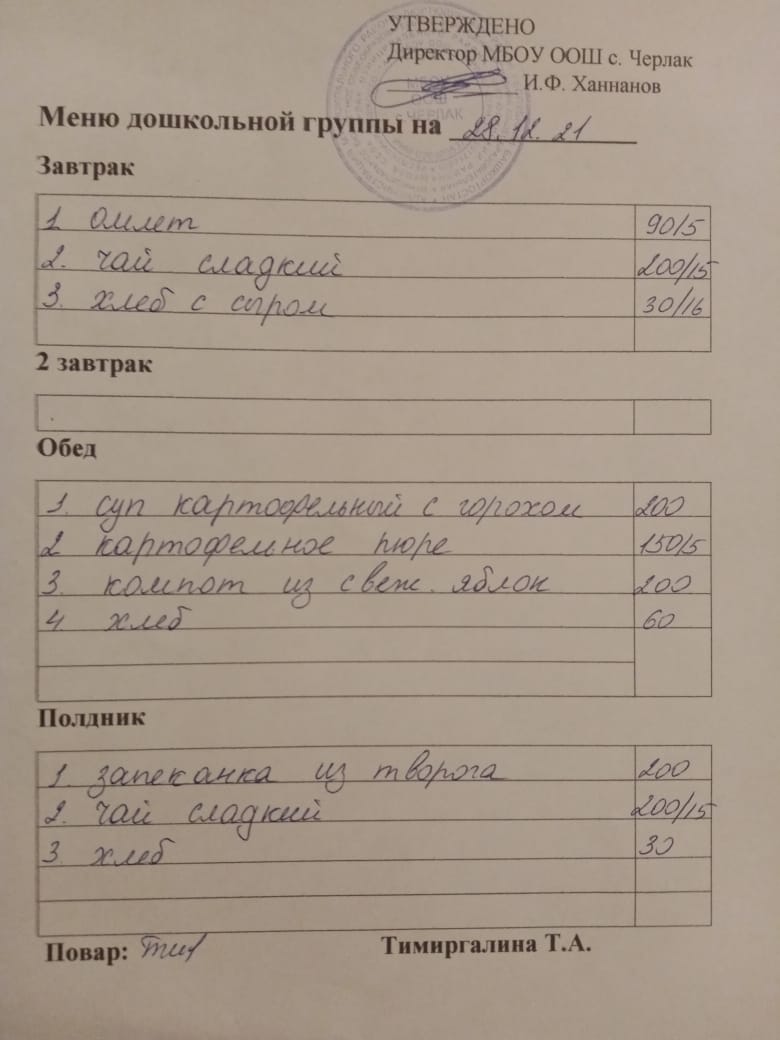 УТВЕРЖДЕНО
Директор МБОУ ООШ с. Черлак
И.Ф. Ханнанов
МБОУ
ООШ
с ЧЕРЛАК
Меню дошкольной группы на 28.12.21
Завтрак
1 омлет 90/5
2. чай сладкий 200/15
3. хлеб с сыром 30/16
2 завтрак
Обед
1. суп картофельный с горохом 200
2 картофельное пюре 150/5
3. компот из свеж. яблок 200
4. хлеб 60
Полдник
1. запеканка из творога 200
2. чай сладкий 200/15
3. хлеб 30
Повар: Тимиргалина Т.А.